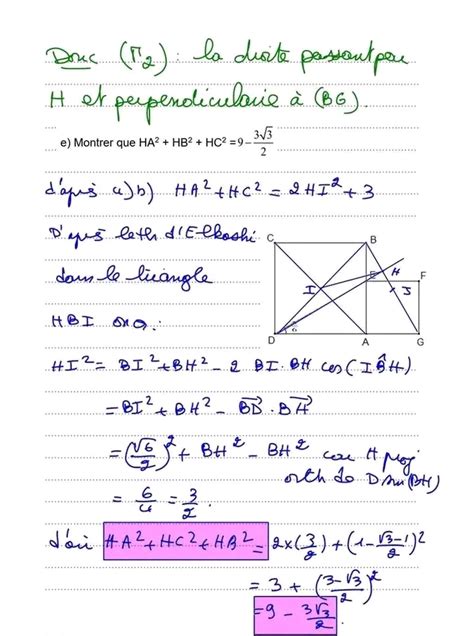 Donc (Γ₂) : la droite passant par
H et perpendiculaire à (BG).
e) Montrer que HA² + HB² + HC² = 9 - 3√3/2
d'après a) b) HA² + HC² = 2HI² + 3
D'après le th d'El-kashi
dans le triangle
HBI on a :
C B E H F I J D 6 A G
HI² = BI² + BH² - 2 BI · BH cos(IB̂H)
= BI² + BH² - BD⃗ · BH⃗
= (√6/2)² + BH² - BH² car H proj
orth de D sur (BH)
= 6/4 = 3/2
d'où HA² + HC² + HB² = 2×(3/2) + (1 - √3-1/2)²
= 3 + (3-√3/2)²
= 9 - 3√3/2